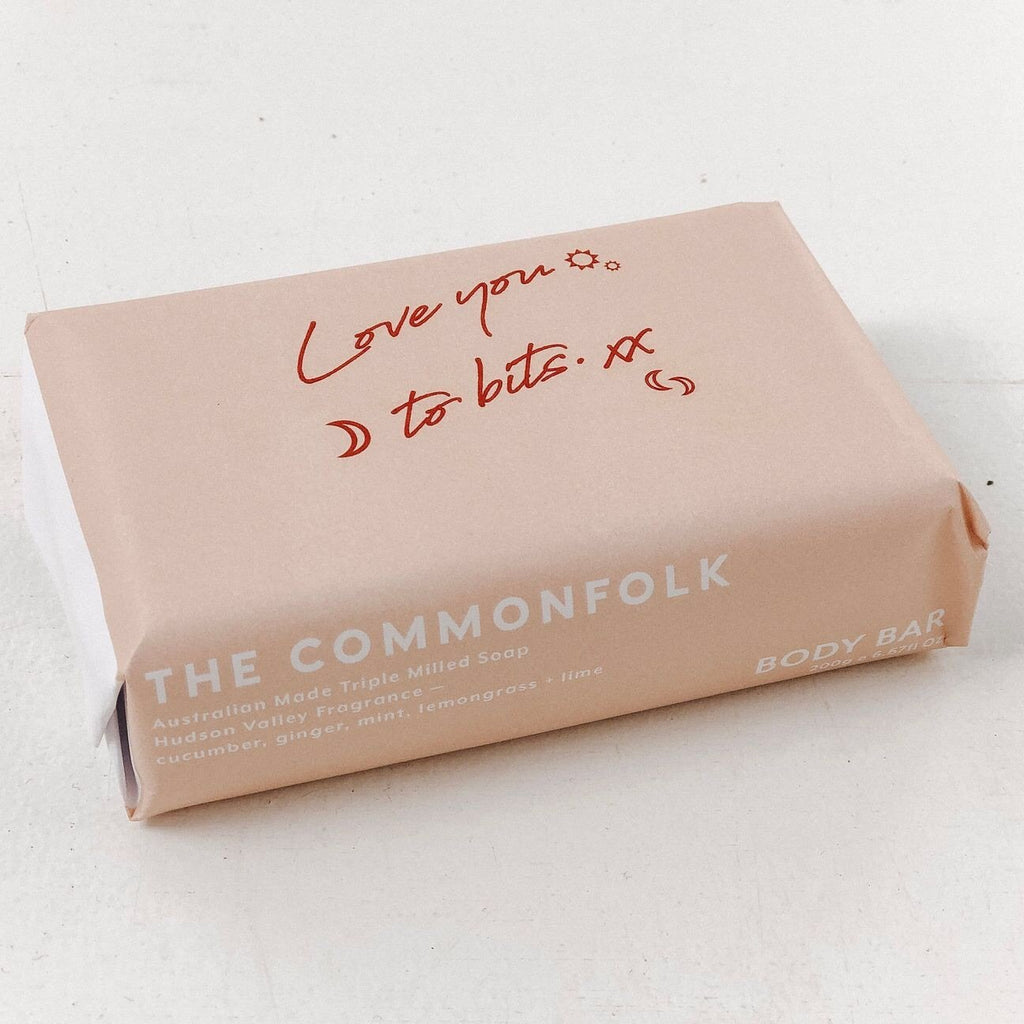 Love you
to bits. xx
THE COMMONFOLK
Australian Made Triple Milled Soap
Hudson Valley Fragrance –
cucumber, ginger, mint, lemongrass + lime
BODY BAR
200g